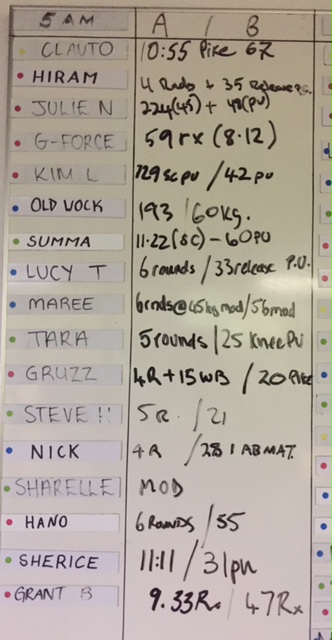 5 AM A / B
CLAUTO 10:55 Pike 67
HIRAM 4 Rnds + 35 Release P.
JULIE N 224(45) + 48(PU)
G-FORCE 59 rx (8.12)
KIM L 129 SC PU / 42 PU
OLD VOCK 193 / 60kg.
SUMMA 11.22 (SC) - 60PU
LUCY T 6 rounds / 33 release P.U.
MAREE 6rnds@45kg mod / 56mod
TARA 5 rounds / 25 Knee PU
GRUZZ 4R + 15 WB / 20 Pike
STEVE !! 5 R. / 21
NICK 4 R / 28 1 ABMAT.
SHARELLE MOD
HANO 6 Rounds / 55
SHERICE 11:11 / 31pu
GRANT B 9.33Rx / 47Rx